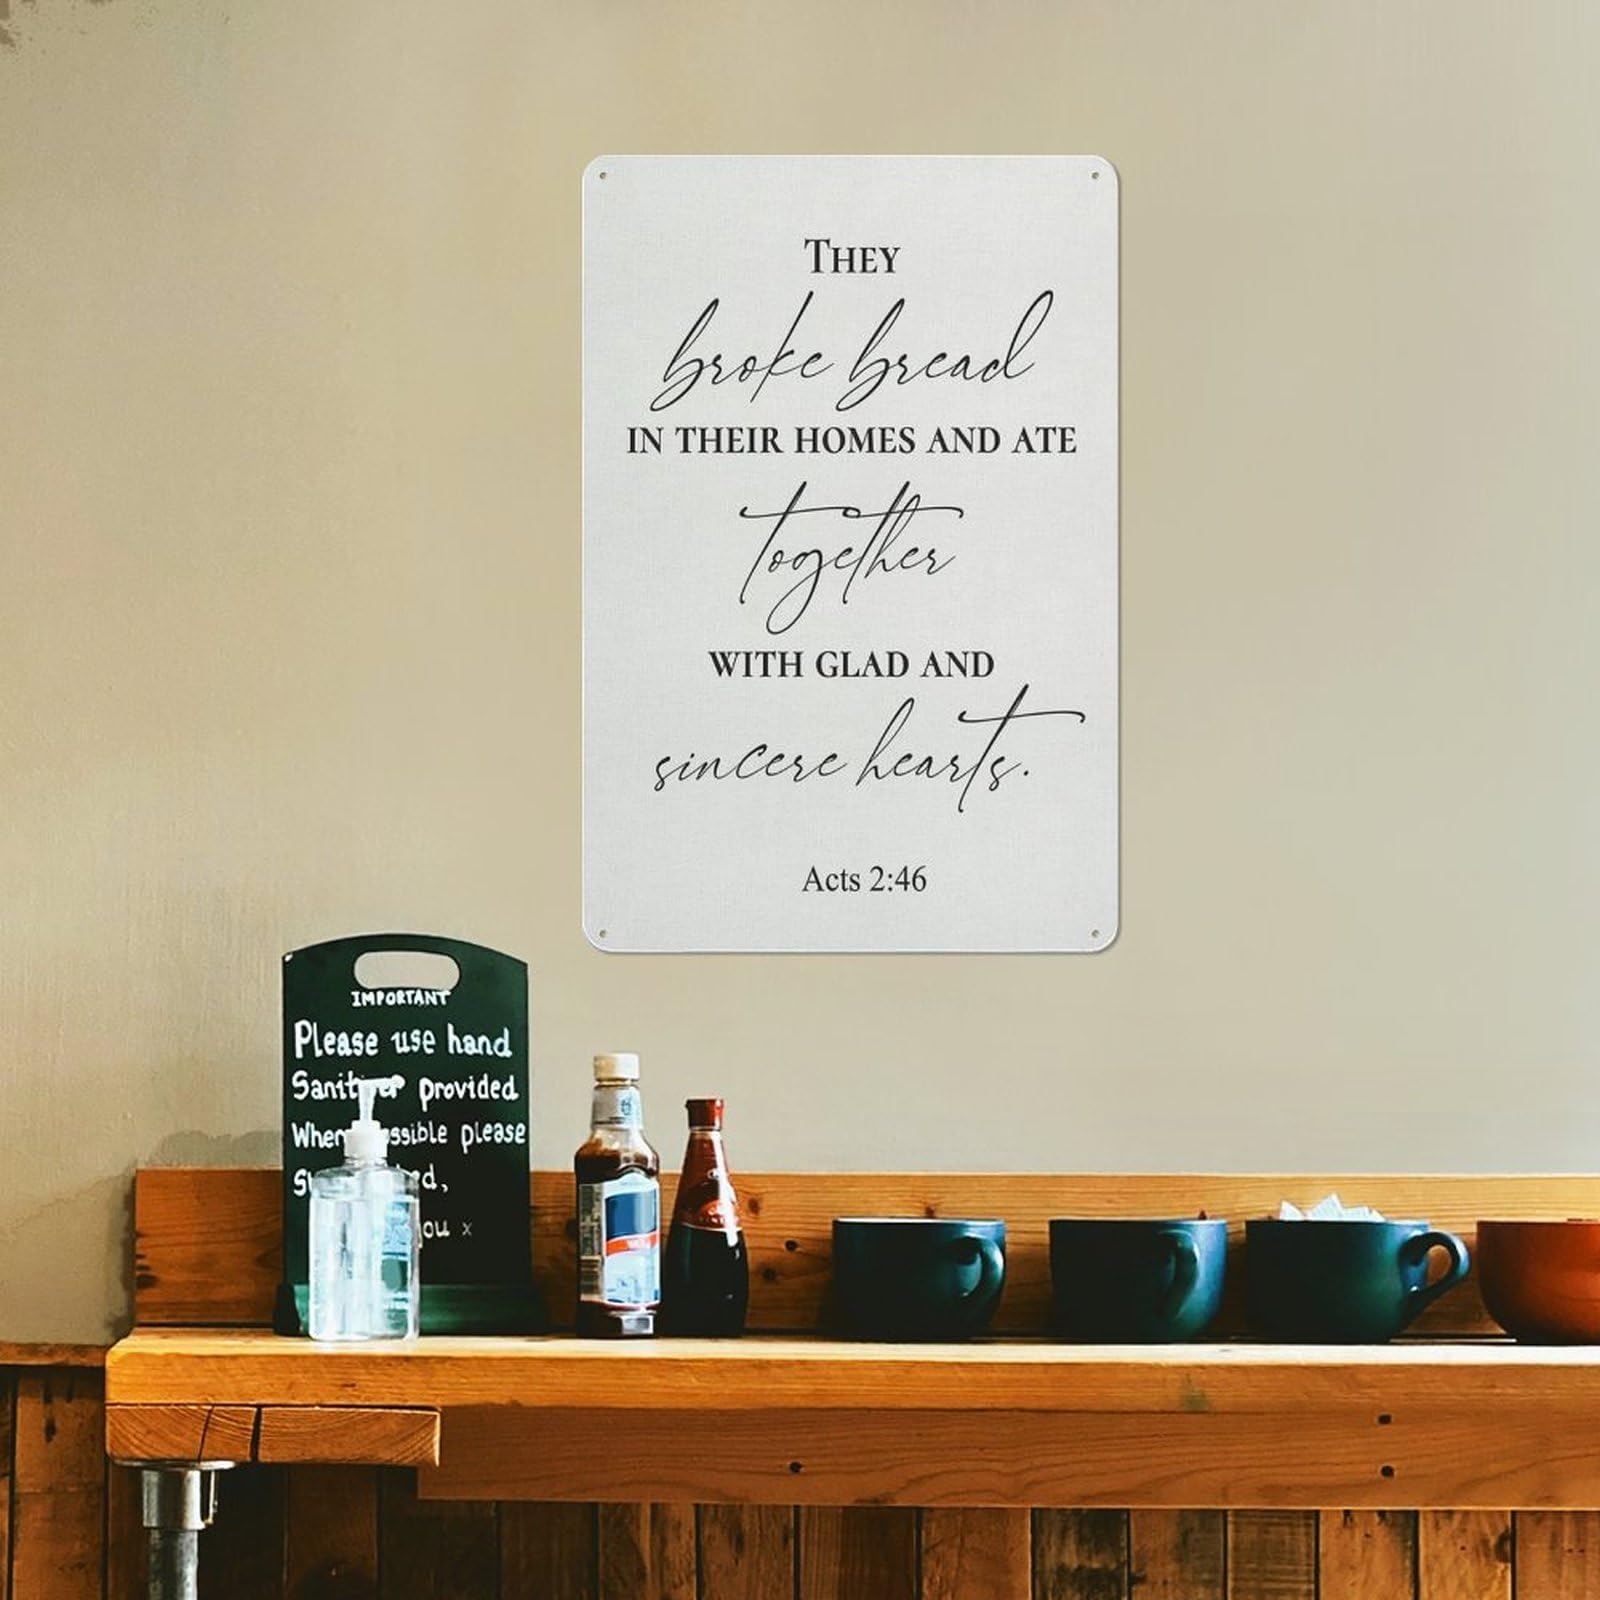 THEY
broke bread
IN THEIR HOMES AND ATE
together
WITH GLAD AND
sincere hearts.
Acts 2:46
IMPORTANT
Please use hand
provided
please